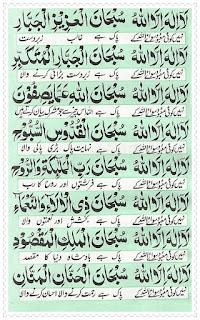 لَا اِلٰهَ اِلَّا اللّٰهُ سُبْحَانَ الْعَزِيْزِ الْجَبَّار
نہیں کوئی معبود سوائے اللہ کے پاک ہے غالب زبردست
لَا اِلٰهَ اِلَّا اللّٰهُ سُبْحَانَ الْجَبَّارِ الْمُتَكَبِّر
نہیں کوئی معبود سوائے اللہ کے پاک ہے زبردست بڑائی کرنے والا
لَا اِلٰهَ اِلَّا اللّٰهُ سُبْحَانَ اللّٰهِ عَمَّا يَصِفُوْنَ
نہیں کوئی معبود سوائے اللہ کے پاک ہے اللہ
لَا اِلٰهَ اِلَّا اللّٰهُ سُبْحَانَ الْقُدُّوْسِ السُّبُّوْح
نہیں کوئی معبود سوائے اللہ کے پاک ہے نہایت پاک بڑی پاکی والا
لَا اِلٰهَ اِلَّا اللّٰهُ سُبْحَانَ رَبِّ الْمَلٰٓئِكَةِ وَالرُّوْح
نہیں کوئی معبود سوائے اللہ کے پاک ہے فرشتوں اور روح کا رب
لَا اِلٰهَ اِلَّا اللّٰهُ سُبْحَانَ ذِی الْاٰلَاءِ وَالنَّعْمَاءِ
نہیں کوئی معبود سوائے اللہ کے پاک ہے بخشش اور نعمتوں والا
لَا اِلٰهَ اِلَّا اللّٰهُ سُبْحَانَ الْمَلِكِ الْمَقْصُوْد
نہیں کوئی معبود سوائے اللہ کے پاک ہے بادشاہ دنیا کا مقصد
لَا اِلٰهَ اِلَّا اللّٰهُ سُبْحَانَ الْحَنَّانِ الْمَنَّان
نہیں کوئی معبود سوائے اللہ کے پاک ہے رحمت کرنے والا احسان کرنے والا